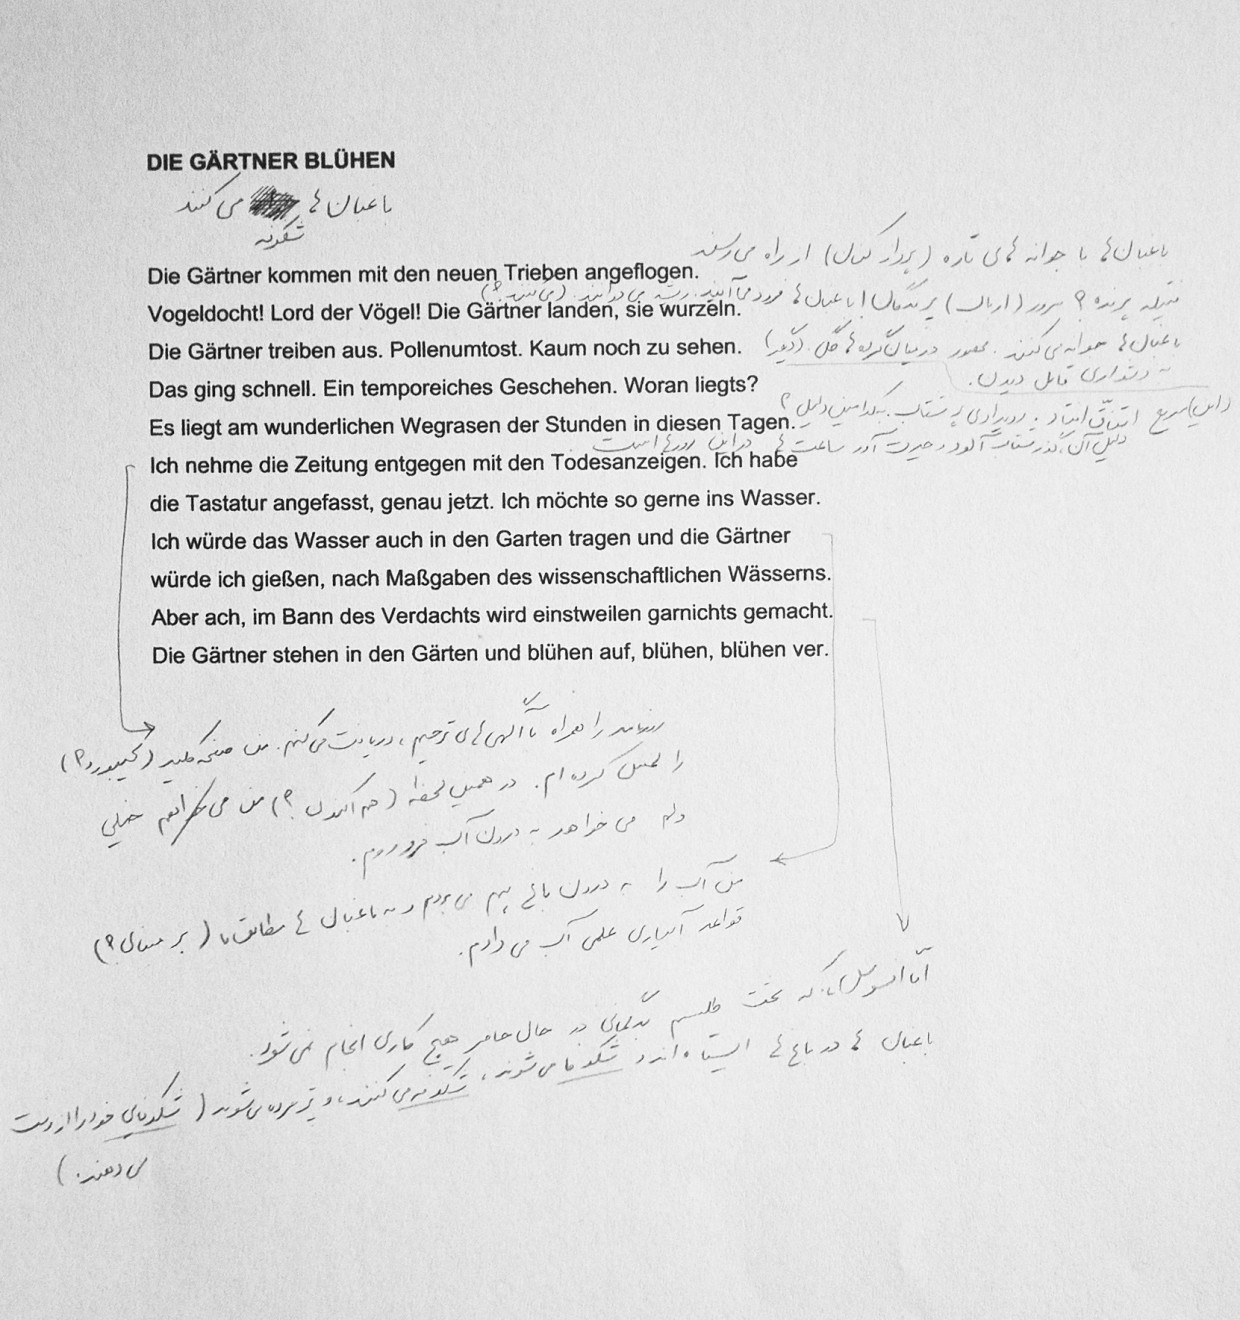 DIE GÄRTNER BLÜHEN
باغبان ها می کنند
شکوفه
Die Gärtner kommen mit den neuen Trieben angeflogen.
باغبان ها با جوانه های تازه (پرواز کنان) از راه می رسند
Vogeldocht! Lord der Vögel! Die Gärtner landen, sie wurzeln.
پرنده ؟ سرور (ارباب) پرندگان! باغبان ها فرود می آیند. ریشه می دوانند. (می کنند؟)
Die Gärtner treiben aus. Pollenumtost. Kaum noch zu sehen.
باغبان ها جوانه می کنند. محصور در میان گرده های گل.
به دشواری قابل دیدن.
Das ging schnell. Ein temporeiches Geschehen. Woran liegts?
(این) سریع اتفاق افتاد. رویدادی پر شتاب. به کدامین دلیل؟
Es liegt am wunderlichen Wegrasen der Stunden in diesen Tagen.
دلیل آن گذر شتاب آلود و حیرت آور ساعت ها در این روزها است
Ich nehme die Zeitung entgegen mit den Todesanzeigen. Ich habe
die Tastatur angefasst, genau jetzt. Ich möchte so gerne ins Wasser.
Ich würde das Wasser auch in den Garten tragen und die Gärtner
würde ich gießen, nach Maßgaben des wissenschaftlichen Wässerns.
Aber ach, im Bann des Verdachts wird einstweilen garnichts gemacht.
Die Gärtner stehen in den Gärten und blühen auf, blühen, blühen ver.
روزنامه را همراه با آگهی های ترحیم، دریافت می کنم. من صفحه کلید (کیبورد؟)
را لمس کرده ام. در همین لحظه (هم اکنون ؟) من می خواهم خیلی
دلم می خواهد به درون آب فرو روم.
من آب را به درون باغ هم می بردم و به باغبان ها مطابق با (بر مبنای؟)
قواعد آبیاری علمی آب می دادم.
اما افسوس که تحت طلسم بدگمانی در حال حاضر هیچ کاری انجام نمی شود.
باغبان ها در باغ ها ایستاده اند و شکوفا می شوند، شکوفه می کنند، و پژمرده می شوند (شکوفایی خود را از دست
می دهند.)